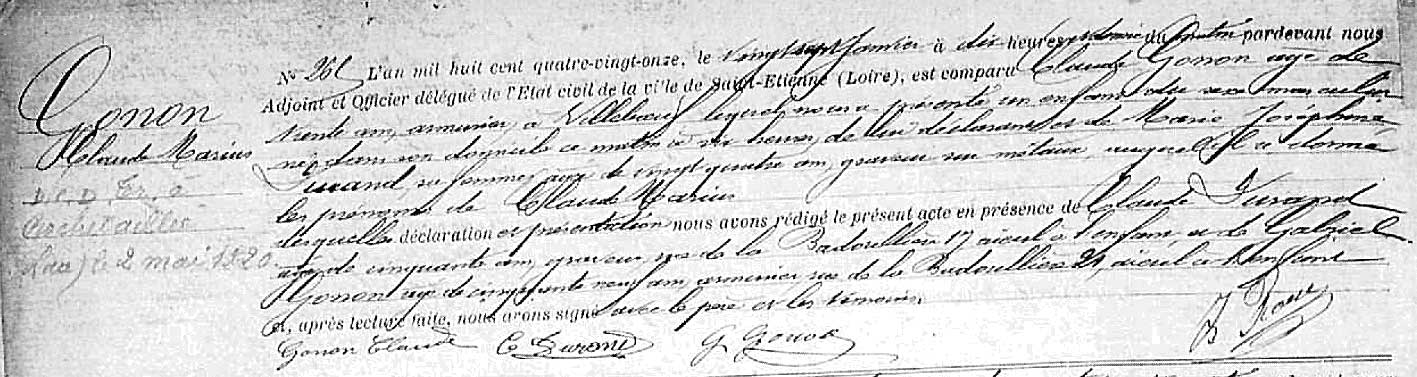 Gonon
Claude Marius
D.C.D. à
le 2 mai 1920
N° 261 L'an mil huit cent quatre-vingt-onze, le vingt sept Janvier à dix heures du matin pardevant nous
Adjoint et Officier délégué de l'Etat civil de la ville de Saint-Etienne (Loire), est comparu Claude Gonon age de
trente ans, armurier, à Villebœuf lequel nous a présenté un enfant du sexe masculin
né dans son domicile ce matin à six heures, de lui déclarant et de Marie Joséphine
Durand, sa femme, agée de vingt quatre ans, graveur sur métaux, auquel il a donné
les prénoms de Claude Marius
desquelles déclaration et présentation nous avons rédigé le présent acte en présence de Claude Durand
agé de cinquante ans, graveur, rue de la Badouillère 17 aïeul à l'enfant et de Gabriel
Gonon age de cinquante neuf ans, armurier, rue de la Badouillère 21, aïeul à l'enfant
et, après lecture faite, nous avons signé avec le père et les témoins.
Gonon Claude C Durand G Gonon